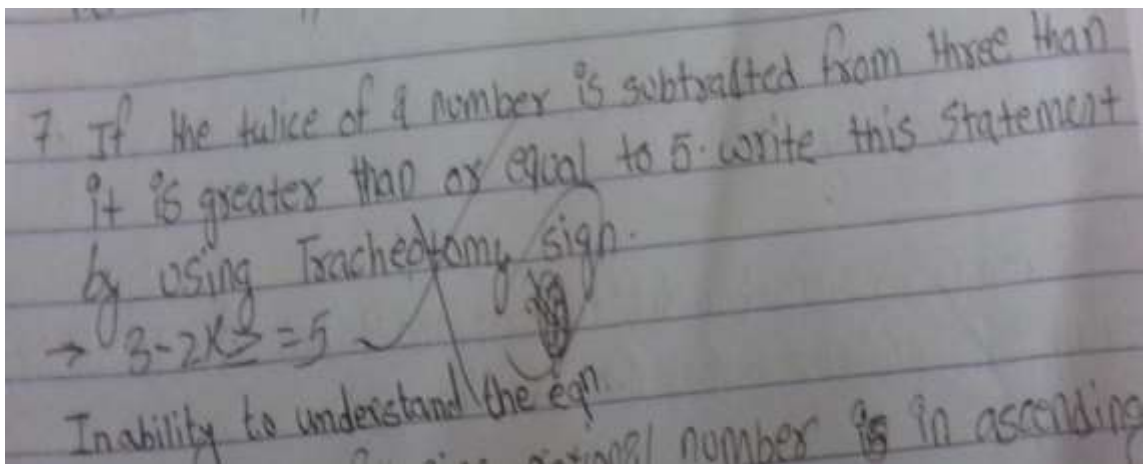 7. If the twice of a number is subtracted from three than
it is greater than or equal to 5. write this statement
by using Tracheotomy sign.
→ 3-2x≥=5
Inability to understand the eqn.
number is in ascending